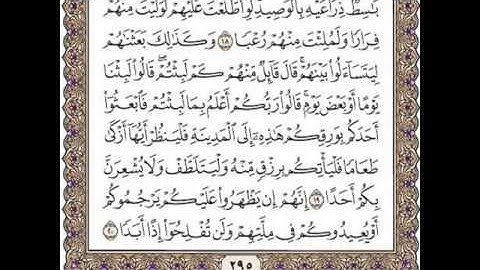 بَٰسِطٌ ذِرَاعَيْهِ بِٱلْوَصِيدِ لَوِ ٱطَّلَعْتَ عَلَيْهِمْ لَوَلَّيْتَ مِنْهُمْ
فِرَارًا وَلَمُلِئْتَ مِنْهُمْ رُعْبًا ١٨ وَكَذَٰلِكَ بَعَثْنَٰهُمْ
لِيَتَسَآءَلُوا۟ بَيْنَهُمْ ۚ قَالَ قَآئِلٌ مِّنْهُمْ كَمْ لَبِثْتُمْ ۖ قَالُوا۟ لَبِثْنَا
يَوْمًا أَوْ بَعْضَ يَوْمٍ ۚ قَالُوا۟ رَبُّكُمْ أَعْلَمُ بِمَا لَبِثْتُمْ فَٱبْعَثُوٓا۟
أَحَدَكُم بِوَرِقِكُمْ هَٰذِهِۦٓ إِلَى ٱلْمَدِينَةِ فَلْيَنظُرْ أَيُّهَآ أَزْكَىٰ
طَعَامًا فَلْيَأْتِكُم بِرِزْقٍ مِّنْهُ وَلْيَتَلَطَّفْ وَلَا يُشْعِرَنَّ
بِكُمْ أَحَدًا ١٩ إِنَّهُمْ إِن يَظْهَرُوا۟ عَلَيْكُمْ يَرْجُمُوكُمْ
أَوْ يُعِيدُوكُمْ فِى مِلَّتِهِمْ وَلَن تُفْلِحُوٓا۟ إِذًا أَبَدًا ٢٠
٢٩٥